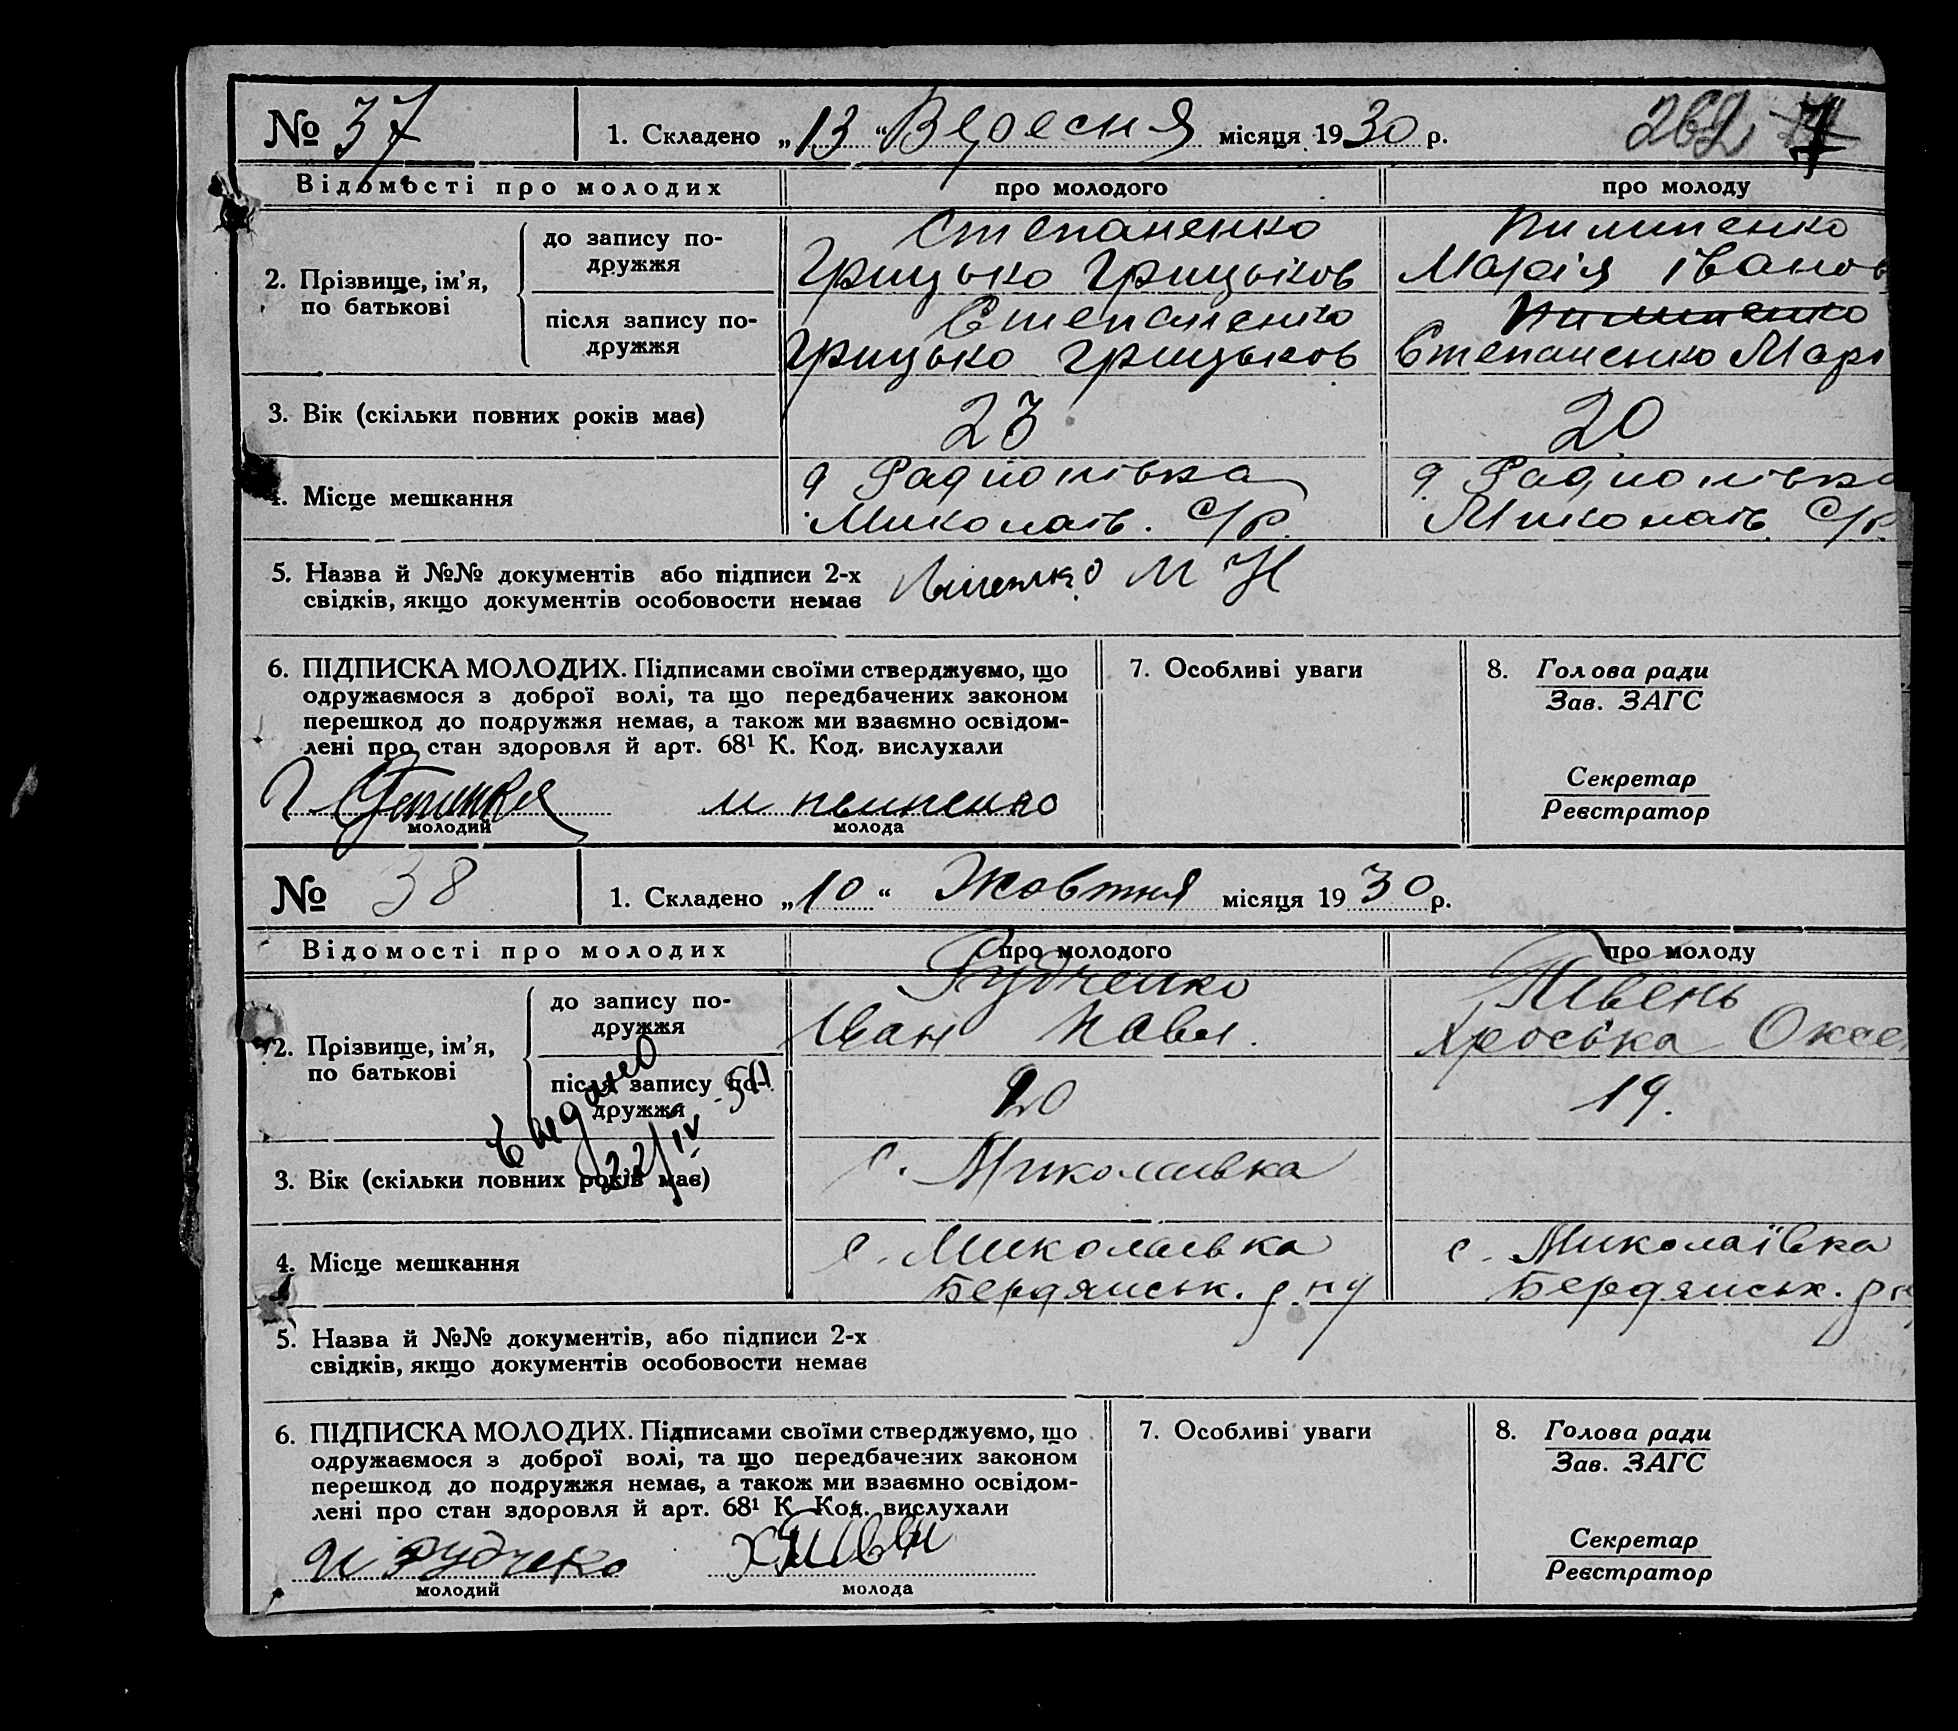 № 37
1. Складено „13“ Вересня місяця 1930 р.
262
7
Відомості про молодих
про молодого
про молоду
2. Прізвище, ім'я,
по батькові
до запису по-
дружжя
Степаненко
Грицько Грицьков
Пилипенко
Марія Іванов
після запису по-
дружжя
Степаненко
Грицько Грицьков
Пилипенко
Степаненко Марі
3. Вік (скільки повних років має)
23
20
4. Місце мешкання
д Радионівка
Миколаїв. С/р.
д. Радионівка
Миколаїв. С/р.
5. Назва й №№ документів або підписи 2-х
свідків, якщо документів особовости немає
М Н
6. ПІДПИСКА МОЛОДИХ. Підписами своїми стверджуємо, що
одружаємося з доброї волі, та що передбачених законом
перешкод до подружжя немає, а також ми взаємно освідом-
лені про стан здоровля й арт. 68¹ К. Код. вислухали
Г
молодий
М Пилипенко
молода
7. Особливі уваги
8. Голова ради
Зав. ЗАГС
Секретар
Реєстратор
№ 38
1. Складено „10“ Жовтня місяця 1930 р.
Відомості про молодих
про молодого
про молоду
2. Прізвище, ім'я,
по батькові
до запису по-
дружжя
Рудченко
Іван Павл.
Півень
Хроська Оксен
після запису по-
дружжя
20
19.
Видано
22/IV-50
3. Вік (скільки повних років має)
с. Миколаївка
4. Місце мешкання
с. Миколаївка
Бердянськ. р-ну
с. Миколаївка
Бердянськ. рн
5. Назва й №№ документів, або підписи 2-х
свідків, якщо документів особовости немає
6. ПІДПИСКА МОЛОДИХ. Підписами своїми стверджуємо, що
одружаємося з доброї волі, та що передбачених законом
перешкод до подружжя немає, а також ми взаємно освідом-
лені про стан здоровля й арт. 68¹ К. Код. вислухали
И Рудчеко
молодий
молода
7. Особливі уваги
8. Голова ради
Зав. ЗАГС
Секретар
Реєстратор